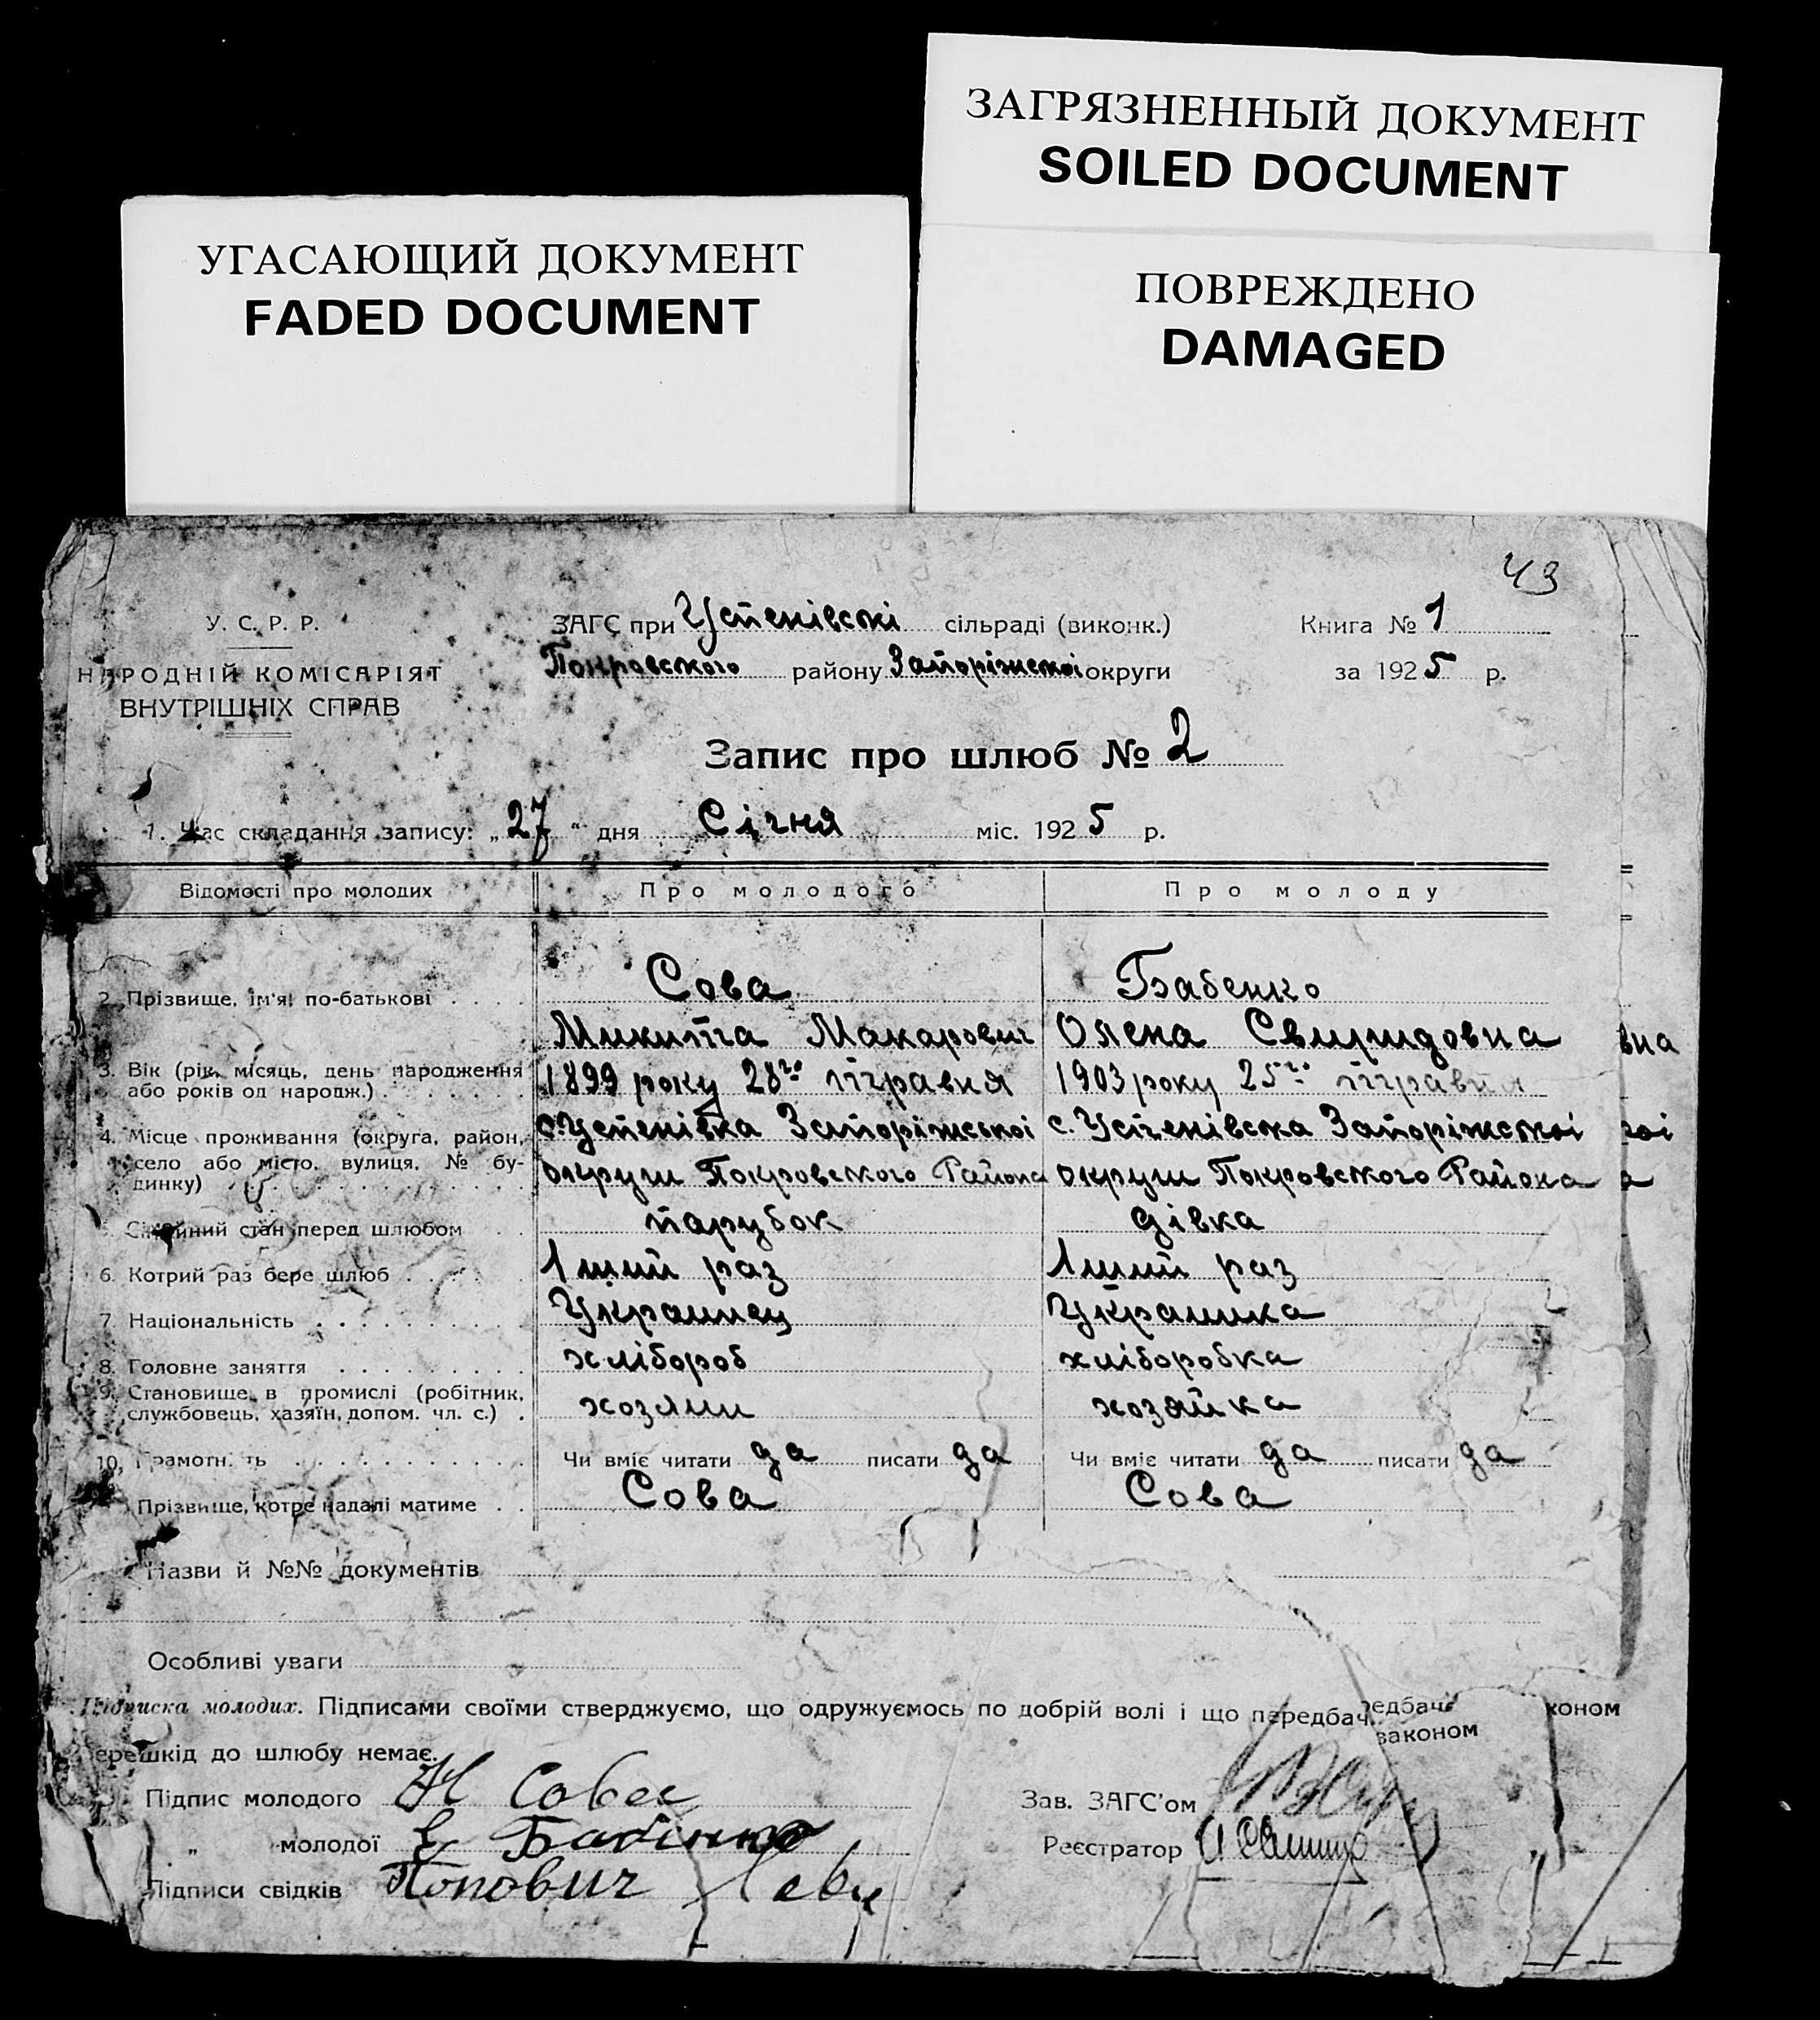 ЗАГРЯЗНЕННЫЙ ДОКУМЕНТ
SOILED DOCUMENT
УГАСАЮЩИЙ ДОКУМЕНТ
FADED DOCUMENT
ПОВРЕЖДЕНО
DAMAGED
43
У. С. Р. Р.
НАРОДНІЙ КОМІСАРІЯТ
ВНУТРІШНІХ СПРАВ
ЗАГС при Успенівскі сільраді (виконк.)
Покровского району Запоріжскоі округи
Книга № 1
за 1925 р.
Запис про шлюб № 2
1. Час складання запису: „27“ дня Січня міс. 1925 р.
Відомості про молодих Про молодого Про молоду
2. Прізвище, ім'я, по-батькові Сова Бабенко
Микита Макарович Олена Свиридовна вна
3. Вік (рік, місяць, день народження або років од народж.) 1899 року 28го травня 1903 року 25го травня
4. Місце проживання (округа, район, с. Успенівка Запоріжської с. Успенівска Запоріжскоі
село або місто, вулиця, № бу- округи Покровского Района округи Покровского Района а
динку)
стан перед шлюбом парубок дівка
6. Котрий раз бере шлюб 1ший раз 1ший раз
7. Національність Украинец Украинка
8. Головне заняття хлібороб хліборобка
9. Становище в промислі (робітник,
службовець, хазяїн, допом. чл. с.) хозяин хозяйка
10. Грамотність Чи вміє читати да писати да Чи вміє читати да писати да
Прізвище, котре надалі матиме Сова Сова
Назви й №№ документів
Особливі уваги
Підписка молодих. Підписами своїми стверджуємо, що одружуємось по добрій волі і що передбач едбаче коном
законом
ерешкід до шлюбу немає.
Підпис молодого Н Сова
Зав. ЗАГС'ом
„ молодої Е Бабінко
Реєстратор
Підписи свідків Попович